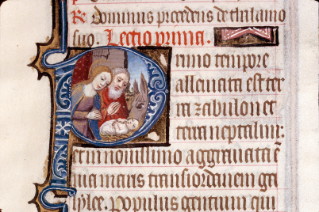 Dominus procedens de thalamo
suo. Lectio prima.
rimo tempore
alleuiata est ter
ra zabulon et
terra neptalim:
et nouissimo aggrauata e
uia maris trans iordanem ga
lylee. Populus gentium qui